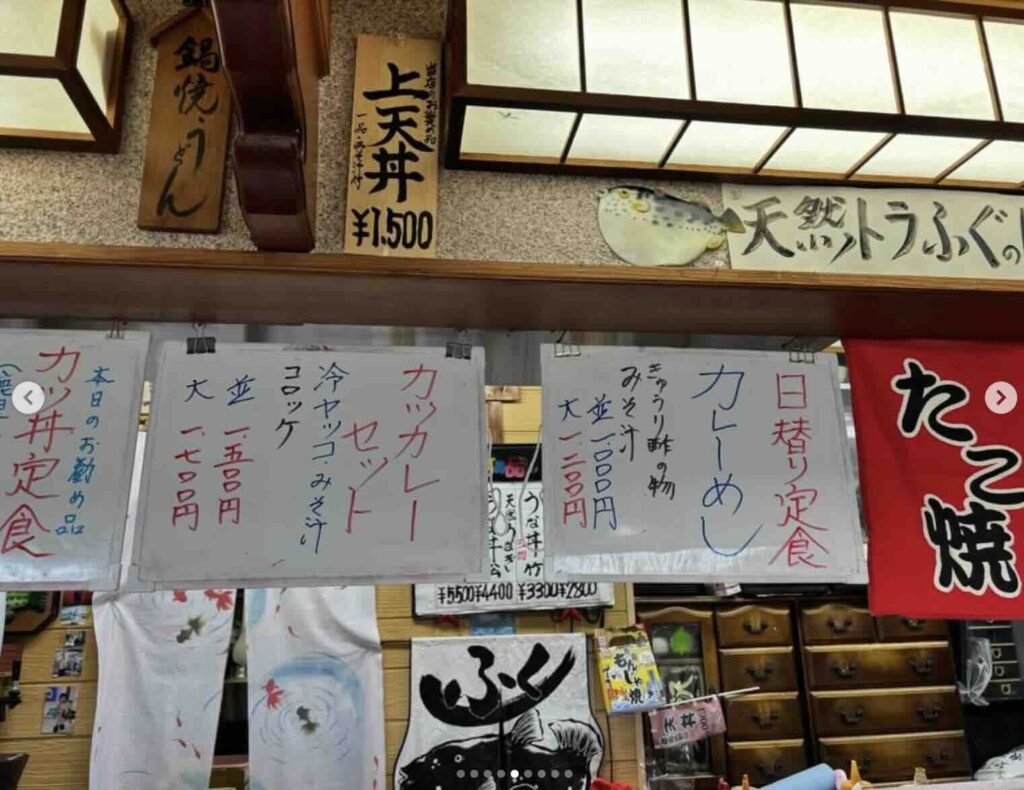 鍋焼うどん
当店のお奨め品
上天丼
一品・みそ汁付
¥1,500
天然トラふぐの
本日のお勧め品
カツ丼定食
カツカレー
セット
冷ヤッコ・みそ汁
コロッケ
並 一、五〇〇円
大 一、七〇〇円
日替り定食
カレーめし
きゅうり酢の物
みそ汁
並 一、〇〇〇円
大 一、二〇〇円
たこ焼
うな丼 竹
天然うなぎ
¥5500 ¥4400 ¥3300 ¥2800
ふく
もんじゃ焼
天丼